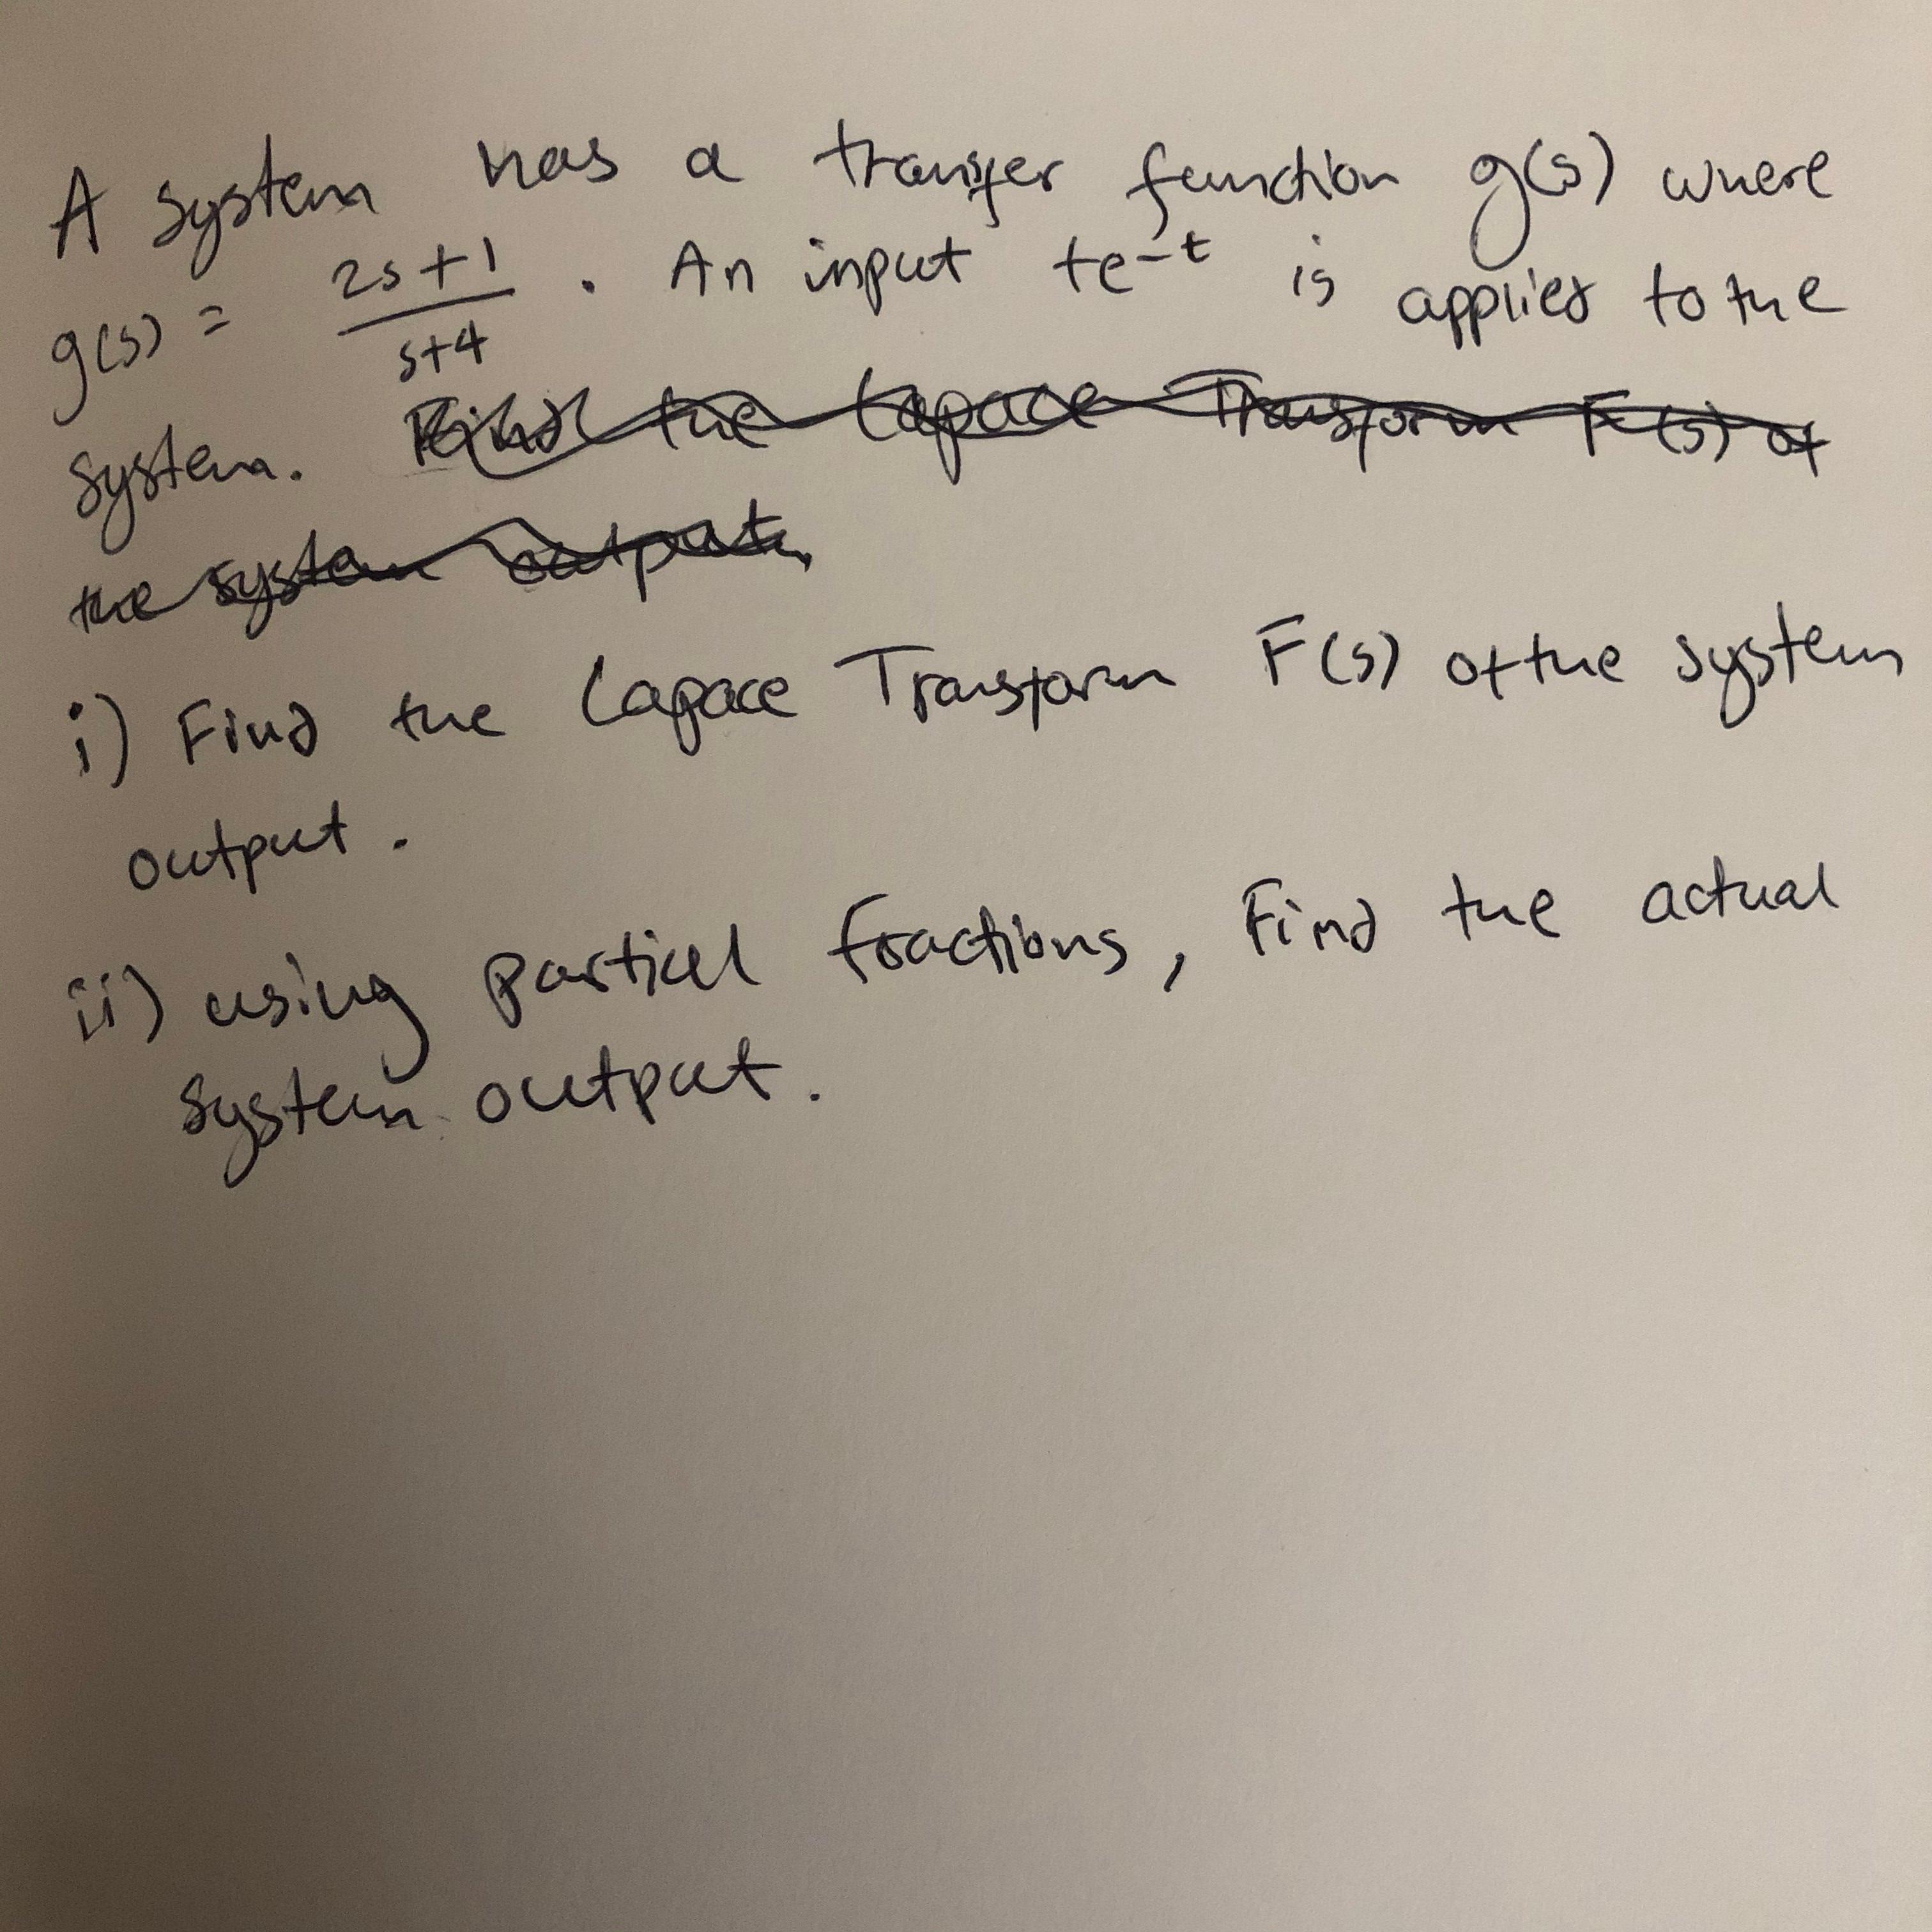 A system has a transfer function g(s) where
g(s) = (2s+1)/(s+4) . An input te^-t is applied to the
system. Find the Lapace Transform F(s) of
the system output.
i) Find the Lapace Transform F(s) of the system
output.
ii) using partial fractions, Find the actual
system output.